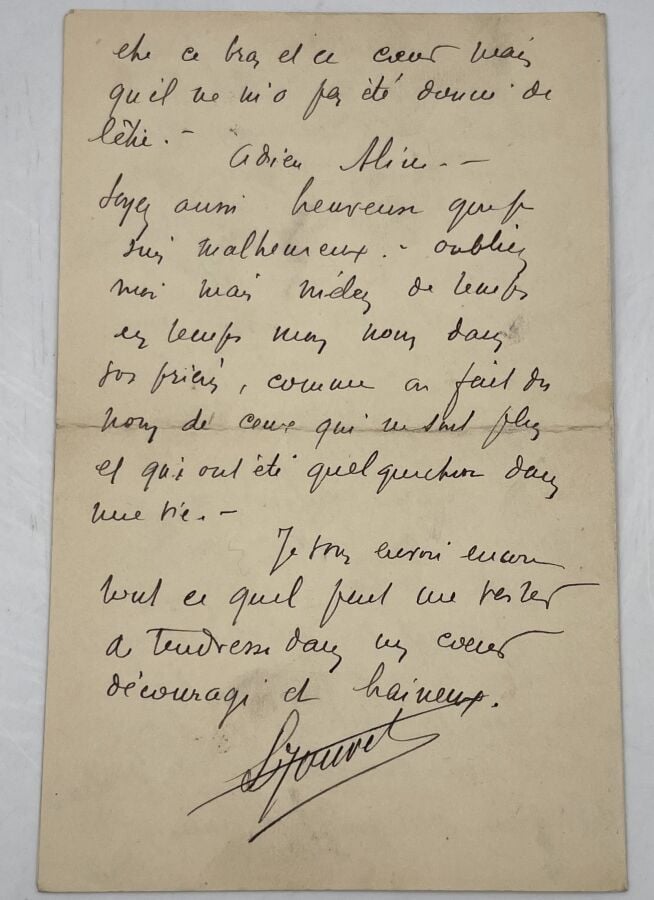 être ce bras et ce cœur mais
qu'il ne m'a pas été donné de
l'être. -
Adieu Aline. -
Soyez aussi heureuse que je
suis malheureux. - oubliez
moi mais mêlez de temps
en temps mon nom dans
vos prières, comme on fait des
noms de ceux qui ne sont plus
et qui ont été quelque chose dans
une vie. -
Je vous envoie encore
tout ce qu'il peut me rester
de tendresse dans un cœur
découragé et haineux.
Jouvet